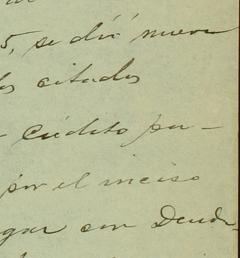 5, se dió nueva
los citados
crédito pa-
por el inciso
gar con Deud